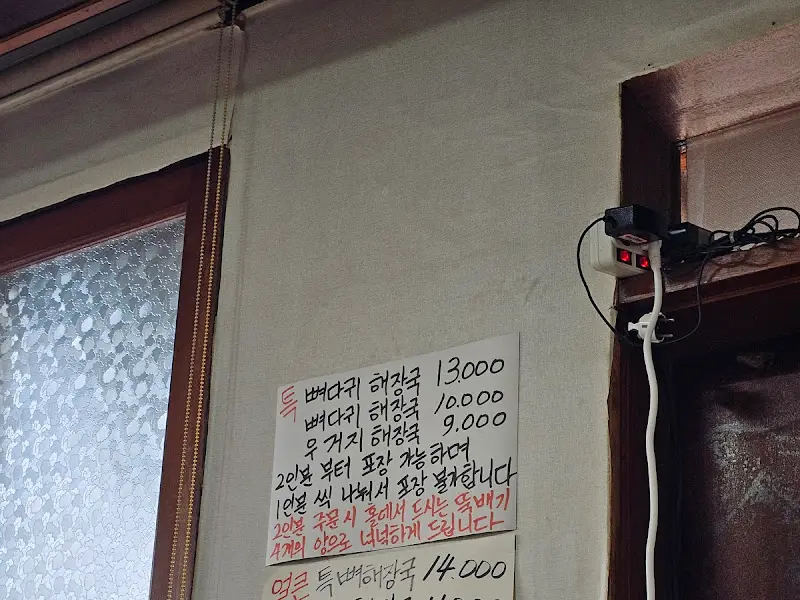 특 뼈다귀 해장국 13.000
뼈다귀 해장국 10.000
우거지 해장국 9.000
2인분 부터 포장 가능하며
1인분 씩 나눠서 포장 불가합니다
2인분 주문시 홀에서 드시는 뚝배기
4개의 양으로 넉넉하게 드립니다
얼큰 특뼈해장국 14.000